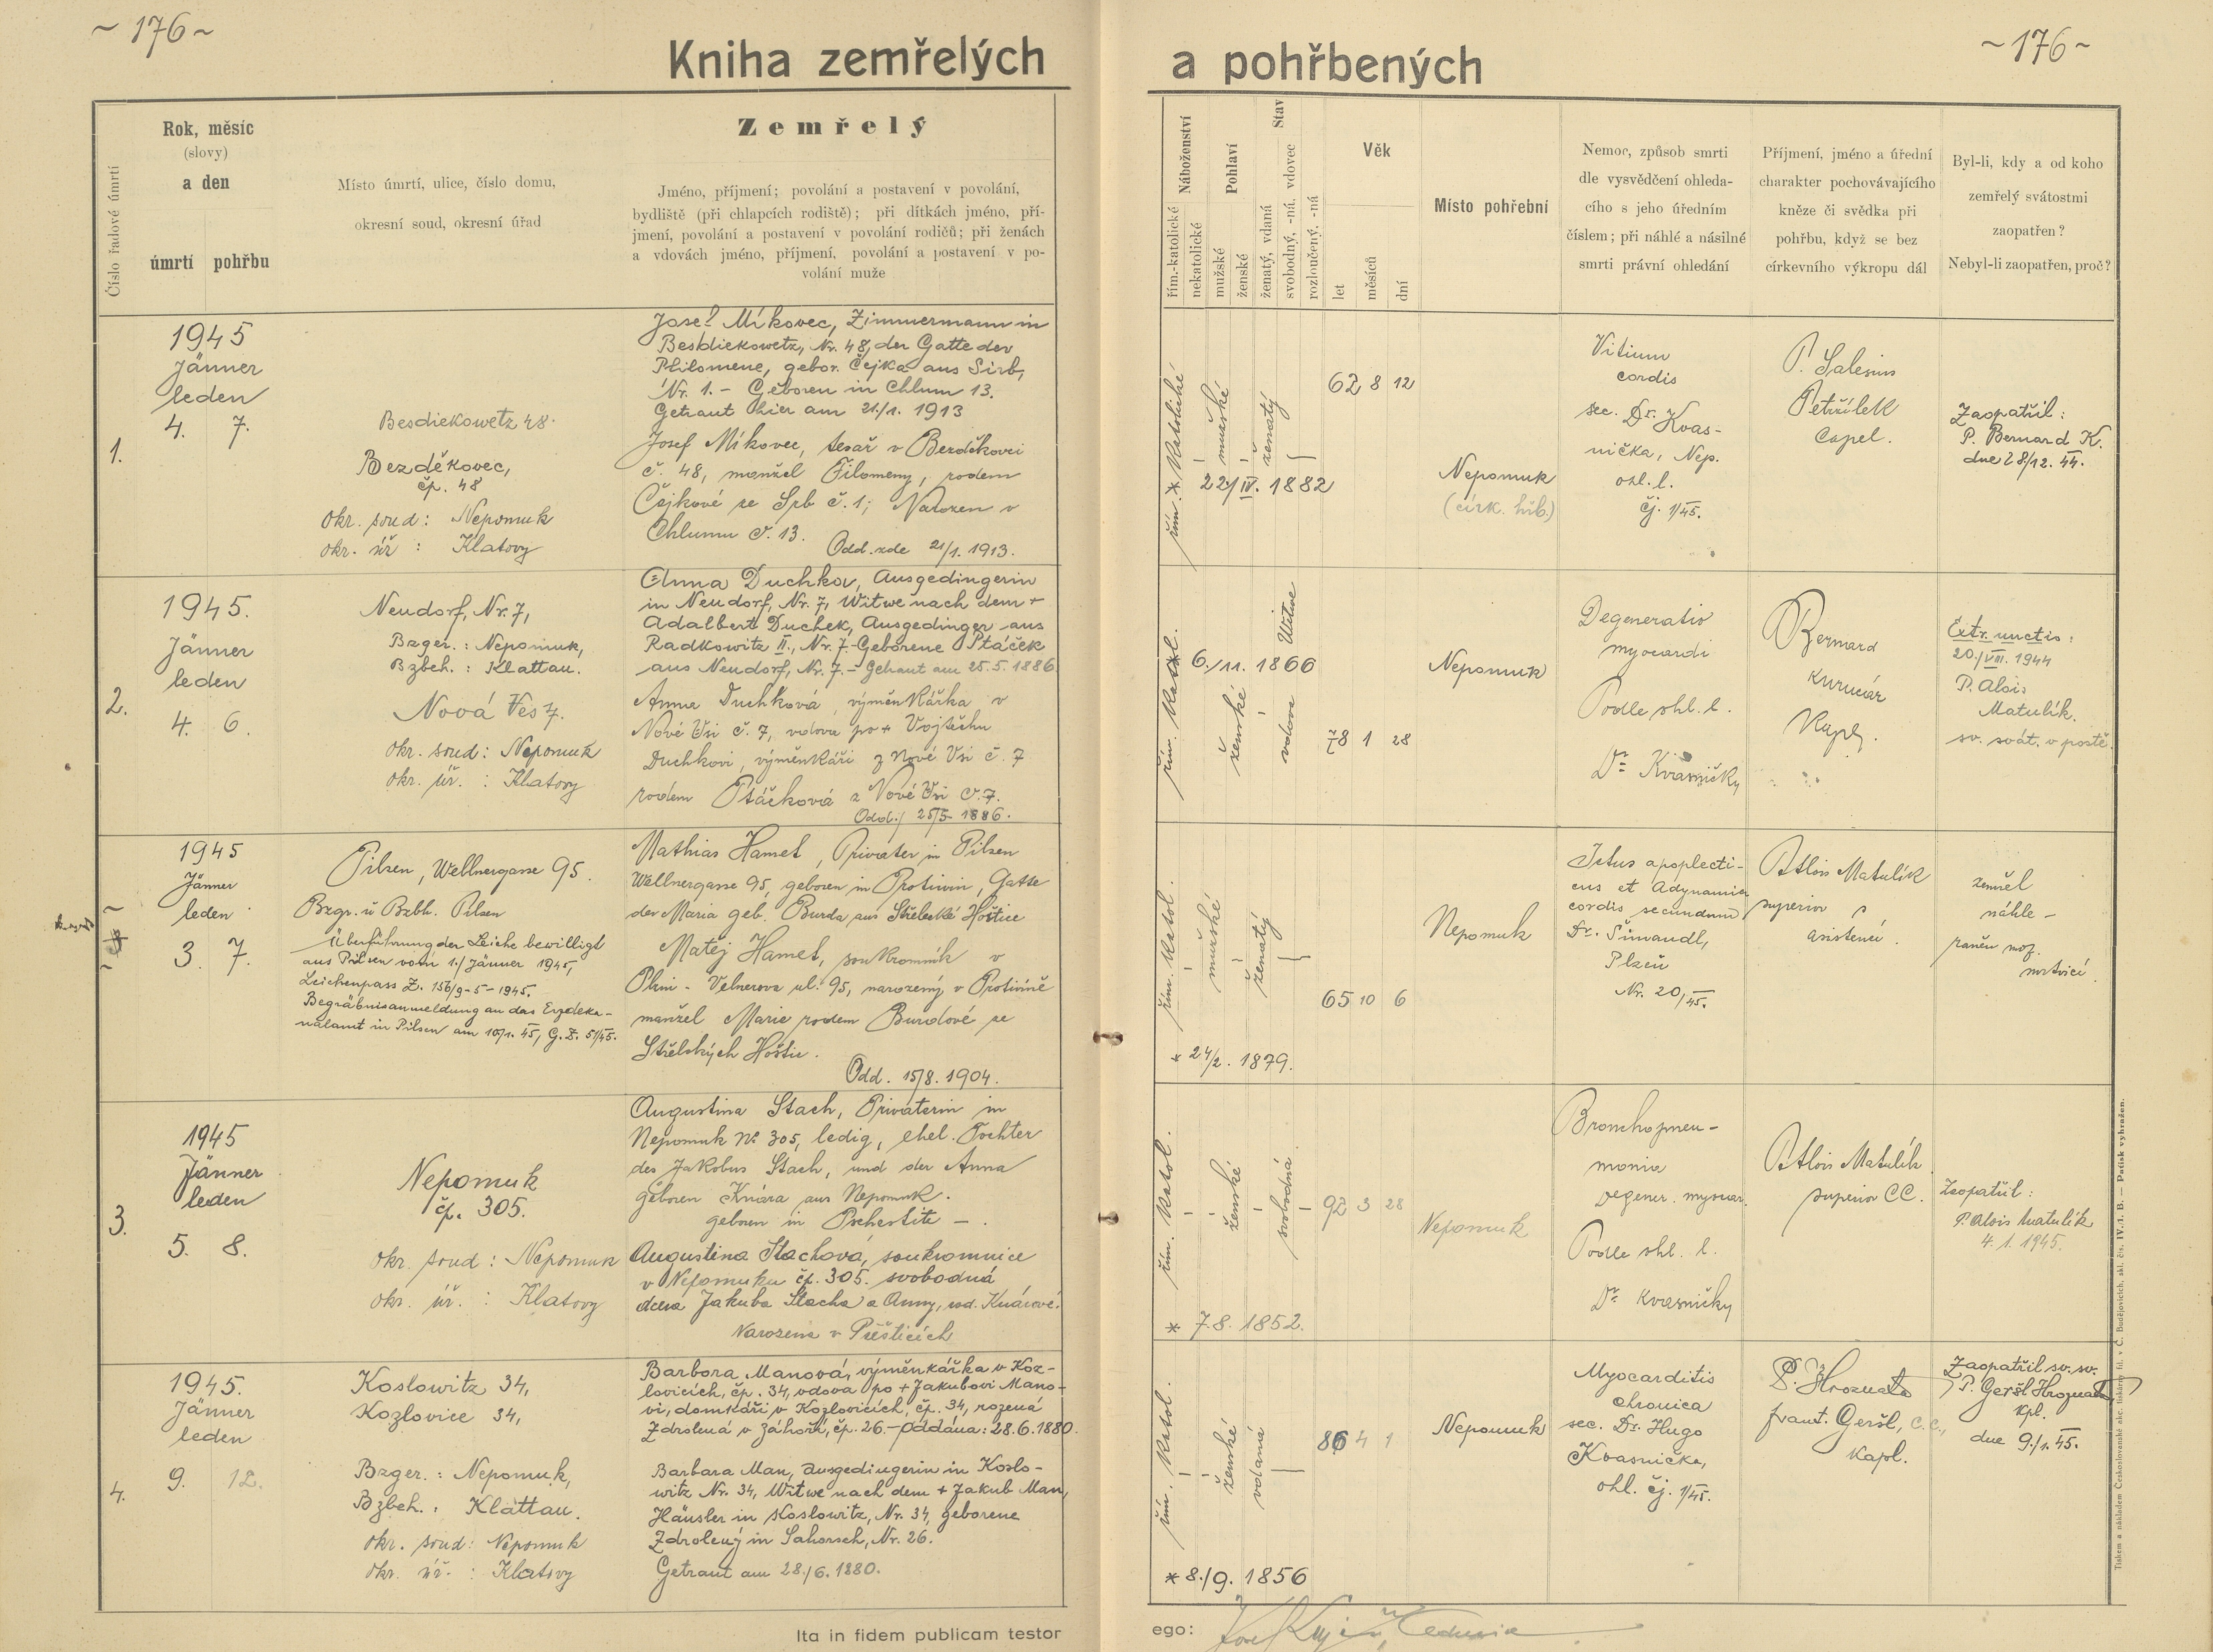 ~ 176 ~
Kniha zemřelých
Číslo řadové úmrtí
Rok, měsíc
(slovy)
a den
úmrtí pohřbu
Místo úmrtí, ulice, číslo domu,
okresní soud, okresní úřad
Zemřelý
Jméno, příjmení; povolání a postavení v povolání,
bydliště (při chlapcích rodiště); při dítkách jméno, pří-
jmení, povolání a postavení v povolání rodičů; při ženách
a vdovách jméno, příjmení, povolání a postavení v po-
volání muže
1.
1945
Jänner
leden
4. 7.
Besdiekowetz 48.
Bezděkovec,
čp. 48
okr. soud: Nepomuk
okr. úř : Klatovy
Josef Míkovec, Zimmermann in
Besdiekowetz, Nr. 48, der Gatte der
Philomene, gebor. Čejka aus Sirb,
Nr. 1. - Geboren in Chlum 13.
Getraut hier am 21./1. 1913
Josef Míkovec, tesař v Bezděkovci
č. 48, manžel Filomeny, rodem
Čejkové ze Srb č. 1; Narozen v
Chlumu č. 13.
Odd. zde 21/1. 1913.
2.
1945.
Jänner
leden
4. 6.
Neudorf, Nr. 7,
Bzger.: Nepomuk,
Bzbeh.: Klattau.
Nová Ves 7.
okr. soud: Nepomuk
okr. úř. : Klatovy
Anna Duchkov, Ausgedingerin
in Neudorf, Nr. 7, Witwe nach dem +
Adalbert Duchek, Ausgedinger aus
Radkowitz II., Nr. 7. Geborene Ptáček
aus Neudorf, Nr. 7. - Getraut am 25.5.1886
Anna Duchková, výměnkářka v
Nové Vsi č. 7, vdova po + Vojtěchu
Duchkovi, výměnkáři z Nové Vsi č. 7
rodem Ptáčková z Nové Vsi č. 7.
Odd.: 25/5 1886.
1945
Jänner
leden
3. 7.
Pilsen, Wellnergasse 95.
Bzgr. u Bzbh. Pilsen
Überführung der Leiche bewilligt
aus Pilsen vom 1./Jänner 1945,
Leichenpass Z. 156/9-5-1945.
Begräbnisanmeldung an das Erzdeka-
nalamt in Pilsen am 10/1. 45, G.Z. 51/45.
Mathias Hamet, Privater in Pilsen
Wellnergasse 95, geboren in Protiwin, Gatte
der Maria geb. Burda aus Střelecké Hoštice
Matěj Hamet, soukromník v
Plzni - Velnerova ul. 95, narozený v Protivíně
manžel Marie rodem Burdové ze
Střelských Hoštic.
Odd. 15/8. 1904.
3.
1945
Jänner
leden
5. 8.
Nepomuk
čp. 305.
okr. soud: Nepomuk
okr. úř. : Klatovy
Augustina Stach, Privaterin in
Nepomuk No 305, ledig, ehel. Tochter
des Jakobus Stach, und der Anna
geboren Knára aus Nepomuk.
geboren in Pschestitz -.
Augustina Stachová, soukromnice
v Nepomuku čp. 305. svobodná
dcera Jakuba Stacha a Anny, rod. Knárové.
Narozena v Přešticích
4.
1945.
Jänner
leden
9. 12.
Koslowitz 34,
Kozlovice 34,
Bzger.: Nepomuk,
Bzbeh.: Klattau.
okr. soud: Nepomuk
okr. úř. : Klatovy
Barbora Manová, výměnkářka v Koz-
lovicích, čp. 34, vdova po + Jakubovi Mano-
vi, domkáři v Kozlovicích, čp. 34, rozená
Zdrolená v Záhoří, čp. 26. - oddána: 28.6.1880.
Barbara Man, Ausgedingerin in Koslo-
witz Nr. 34, Witwe nach dem + Jakub Man,
Häusler in Koslowitz, Nr. 34, geborene
Zdrolený in Sahorsch, Nr. 26.
Getraut am 28./6. 1880.
Ita in fidem publicam testor
~ 176 ~
a pohřbených
Náboženství
řím.-katolické
nekatolické
Pohlaví
mužské
ženské
Stav
ženatý, vdaná
svobodný, -ná, vdovec
rozloučený, -ná
Věk
let
měsíců
dní
Místo pohřební
Nemoc, způsob smrti
dle vysvědčení ohleda-
cího s jeho úředním
číslem; při náhlé a násilné
smrti právní ohledání
Příjmení, jméno a úřední
charakter pochovávajícího
kněze či svědka při
pohřbu, když se bez
církevního výkropu dál
Byl-li, kdy a od koho
zemřelý svátostmi
zaopatřen?
Nebyl-li zaopatřen, proč?
řím. Katolické
mužské
ženatý
* 22/IV. 1882
62 8 12
Nepomuk
(círk. hřb.)
Vitium
cordis
sec. Dr. Kvas-
nička, Nep.
ohl. l.
čj. 1/45.
P. Salesius
Petřílek
Capel.
Zaopatřil:
P. Bernard K.
dne 28/12. 44.
řím. Katol.
6./11. 1866
ženské
vdova Witwe
78 1 28
Nepomuk
Degeneratio
myocardi
Podle ohl. l.
Dr Kvasničky
P Bernard
Kurucár
Kapl.
Extr. unctis:
20./VIII. 1944
P. Alois
Matulík.
sv. svát. v postě.
řím. Katol.
mužské
ženatý
65 10 6
* 24/2. 1879.
Nepomuk
Ictus apoplecti-
cus et Adynamia
cordis secundum
Dr. Šimandl,
Plzeň
Nr. 20/45.
P Alois Matulík
superior s
asistencí.
zemřel
náhle -
raněn moz.
mrtvicí
řím. Katol.
ženské
svobodná
92 3 28
* 7.8. 1852.
Nepomuk
Bronchopneu-
monia
Degener. myocar.
Podle ohl. l.
Dr Kvasničky
P Alois Matulík
superior CC.
Zaopatřil:
P. Alois Matulík
4. 1. 1945.
řím. Katol.
ženské
vdaná
86 4 1
* 8./9. 1856
Nepomuk
Myocarditis
chronica
sec. Dr. Hugo
Kvasnička,
ohl. čj. 1/45.
P. Hroznata
Frant. Geršl, C.C.,
Kapl.
Zaopatřil sv. sv.
P. Geršl Hroznata
Kpl.
dne 9./1. 45.
ego:
Tiskem a nákladem Českoslovanské akc. tiskárny fil. v Č. Budějovicích, skl. čís. IV.-1. B. — Patisk vyhražen.